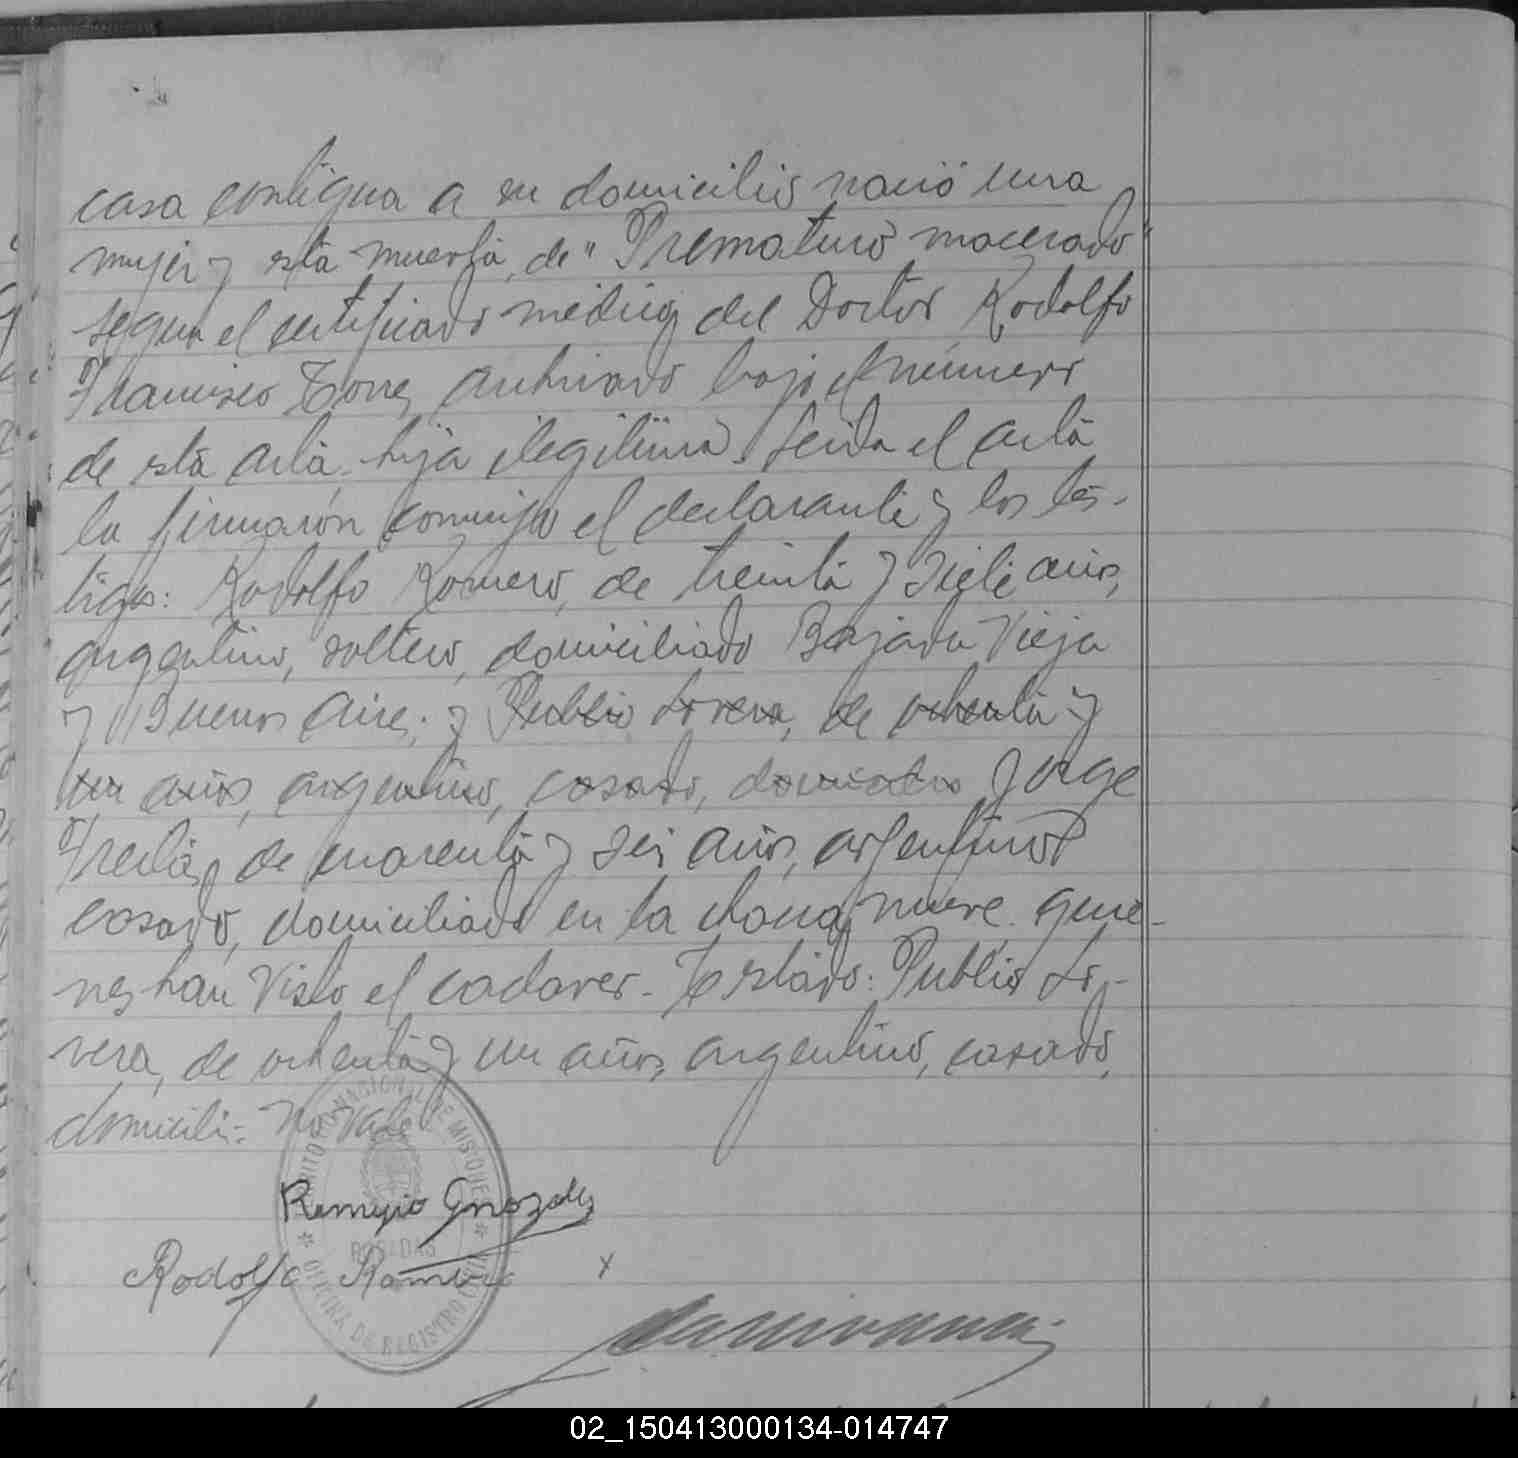 casa contigua a su domicilio nació una
mujer y está muerta, de "Prematuro macerado"
segun el certificado médico del Doctor Rodolfo
Francisco Torres archivado bajo el número
de esta acta, hija ilegítima. Leida el acta
la firmaron conmigo el declarante y los tes-
tigos: Rodolfo Romero, de treinta y siete años,
argentino, soltero, domiciliado Bajada Vieja
y Buenos Aires; y Publio Lovera, de ochenta y
un años, argentino, casado, Jorge
de cuarenta y seis años, argentino
casado, domiciliado en la chacra nueve. quie-
nes han visto el cadaver. Testado: Publio Lo-
vera, de ochenta y un años, argentino, casado,
domicili- No vale
TERRITORIO NACIONAL DE MISIONES
Remigio Gnozalez
POSADAS
Rodolfo Romero x
OFICINA DE REGISTRO CIVIL
02_150413000134-014747